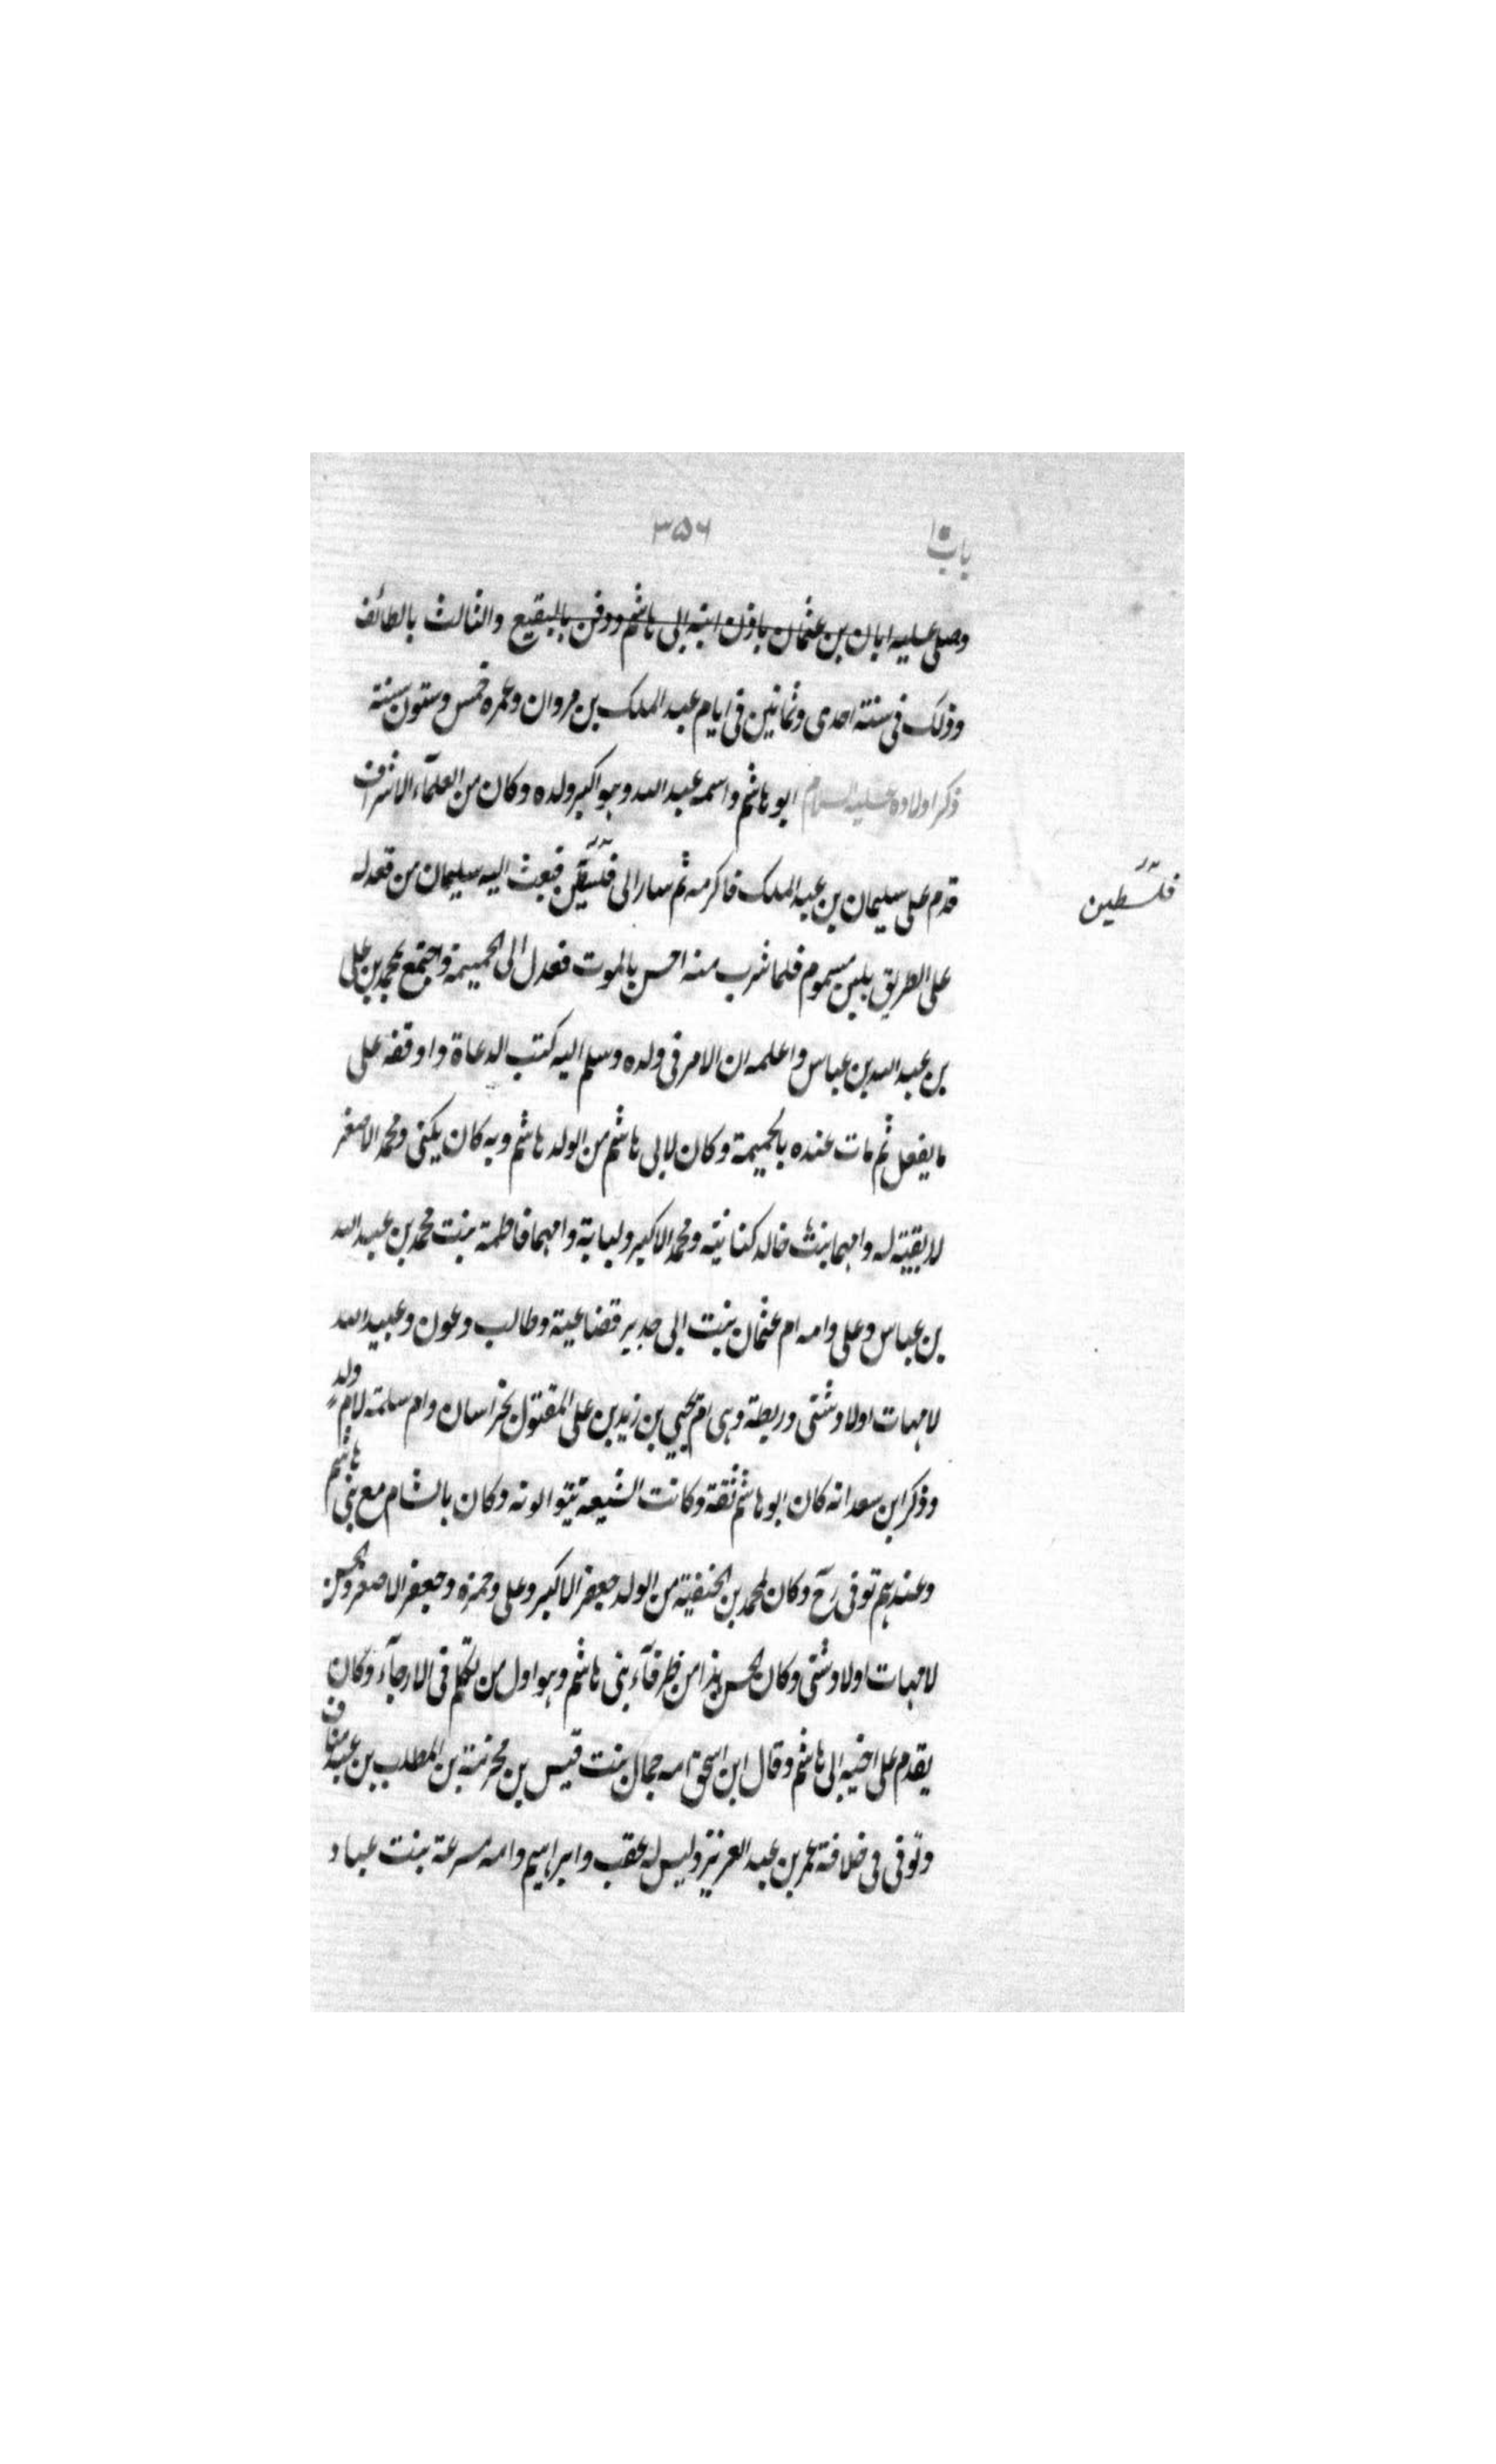 باب ١٠
٣٥٦
وصلى عليه ابان بن عثمان باذن ابنه ابى هاشم ودفن بالبقيع والثالث بالطائف
وذلك فى سنة احدى وثمانين فى ايام عبد الملك بن مروان وعمره خمس وستون سنة
ذكر اولاده عليه السلام ابو هاشم واسمه عبد الله وهو اكبر ولده وكان من العلمآء الاشراف
قدم على سليمان بن عبد الملك فاكرمه ثم سار الى فلسطين فبعث اليه سليمان من قعد له
فلسطين
على الطريق بلبن مسموم فلما شرب منه احس بالموت فعدل الى الحميمة واجتمع بمحمد بن على
بن عبد الله بن عباس واعلمه ان الامر فى ولده وسلم اليه كتب الدعاة واوقفه على
ما يفعل ثم مات عنده بالحميمة وكان لابى هاشم من الولد هاشم وبه كان يكنى ومحمد الاصغر
لا بقية له وامهما بنت خالد كنانية ومحمد الاكبر ولبابة وامهما فاطمة بنت محمد بن عبيد الله
بن عباس وعلى وامه ام عثمان بنت ابى جدير قضاعية وطالب وعون وعبيد الله
لامهات اولاد شتى وريطة وهى ام يحيى بن زيد بن على المقتول بخراسان وام سلمة لام ولد
وذكر ابن سعد انه كان ابو هاشم ثقة وكانت الشيعة تتوالونه وكان بالشام مع بنى هاشم
وعندهم توفى رح وكان لمحمد بن الحنفية من الولد جعفر الاكبر وعلى وحمزه وجعفر الاصغر والحسن
لامهات اولاد شتى وكان الحسن هذا من ظرفآء بنى هاشم وهو اول من تكلم فى الارجآء وكان
يقدم على اخيه ابى هاشم وقال ابن اسحق امه جمال بنت قيس بن مخرمة بن المطلب بن عبد مناف
وتوفى فى خلافة عمر بن عبد العزيز وليس له عقب وابراهيم وامه مسرعة بنت عباد